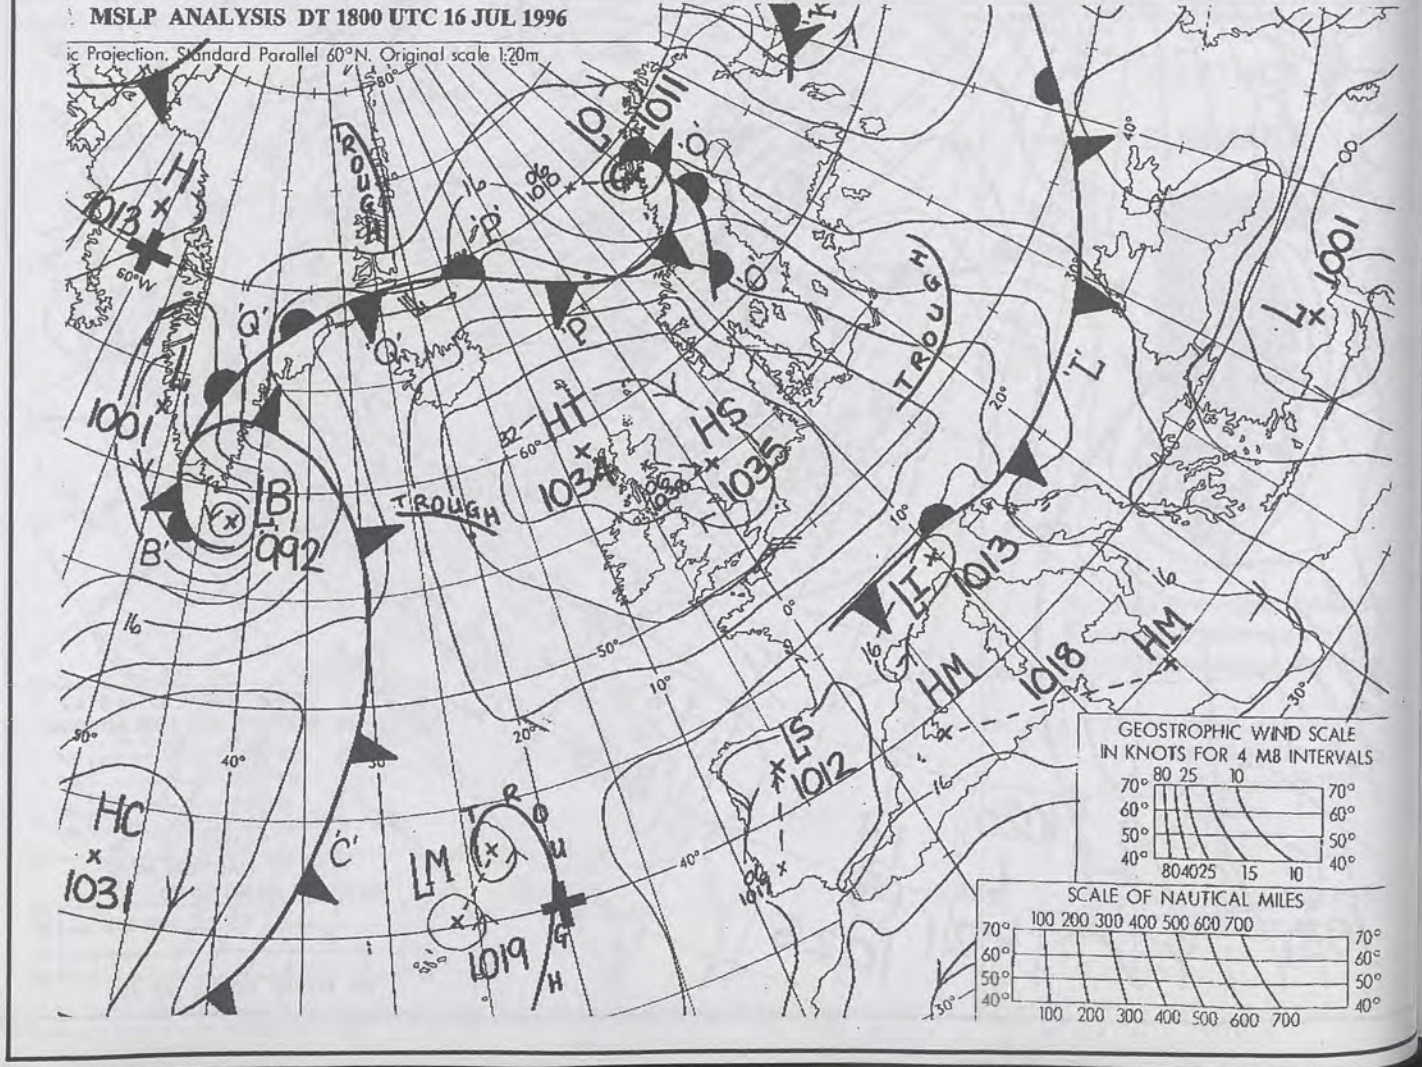 MSLP ANALYSIS DT 1800 UTC 16 JUL 1996
ic Projection. Standard Parallel 60°N. Original scale 1:20m
80°
LO
1011
'O'
40°
TROUGH
H
1013
60°W
16
06
1018
'P'
'O'
TROUGH
L
1001
00
'Q'
'Q'
'P'
30°
'L'
1001
32
60°
HT
1034
HS
1035
20°
TROUGH
LB
992
B'
10°
LI
1013
16
0°
16
50°
16
HM
1018
HM
30°
10°
LS
1012
50°
40°
30°
20°
16
HC
1031
'C'
TROUGH
LM
1019
40°
06
1017
30°
GEOSTROPHIC WIND SCALE
IN KNOTS FOR 4 MB INTERVALS
80 25 10
70° 70°
60° 60°
50° 50°
40° 40°
80 40 25 15 10
SCALE OF NAUTICAL MILES
100 200 300 400 500 600 700
70° 70°
60° 60°
50° 50°
40° 40°
100 200 300 400 500 600 700